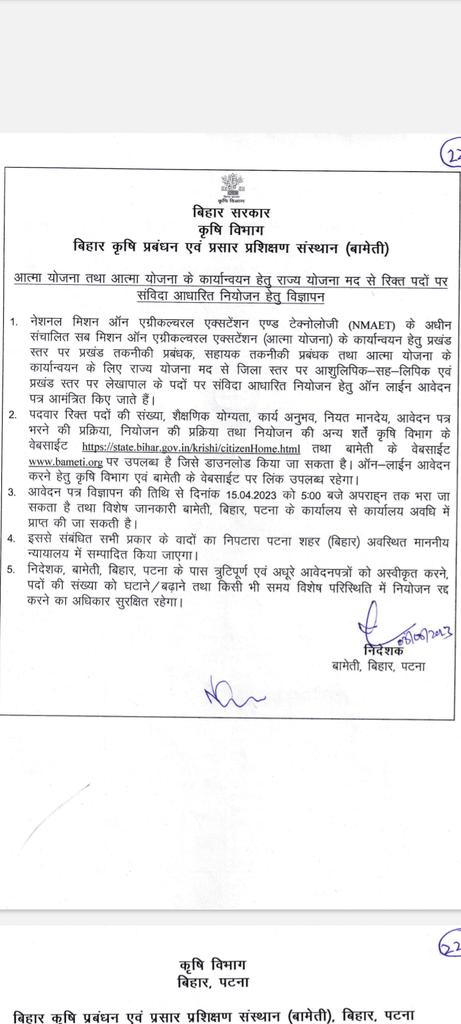 22
कृषि विभाग
बिहार सरकार
कृषि विभाग
बिहार कृषि प्रबंधन एवं प्रसार प्रशिक्षण संस्थान (बामेती)
आत्मा योजना तथा आत्मा योजना के कार्यान्वयन हेतु राज्य योजना मद से रिक्त पदों पर
संविदा आधारित नियोजन हेतु विज्ञापन
1. नेशनल मिशन ऑन एग्रीकल्चरल एक्सटेंशन एण्ड टेक्नोलोजी (NMAET) के अधीन
संचालित सब मिशन ऑन एग्रीकल्चरल एक्सटेंशन (आत्मा योजना) के कार्यान्वयन हेतु प्रखंड
स्तर पर प्रखंड तकनीकी प्रबंधक, सहायक तकनीकी प्रबंधक तथा आत्मा योजना के
कार्यान्वयन के लिए राज्य योजना मद से जिला स्तर पर आशुलिपिक-सह-लिपिक एवं
प्रखंड स्तर पर लेखापाल के पदों पर संविदा आधारित नियोजन हेतु ऑन लाईन आवेदन
पत्र आमंत्रित किए जाते हैं।
2. पदवार रिक्त पदों की संख्या, शैक्षणिक योग्यता, कार्य अनुभव, नियत मानदेय, आवेदन पत्र
भरने की प्रक्रिया, नियोजन की प्रक्रिया तथा नियोजन की अन्य शर्तें कृषि विभाग के
वेबसाईट https://state.bihar.gov.in/krishi/citizenHome.html तथा बामेती के वेबसाईट
www.bameti.org पर उपलब्ध है जिसे डाउनलोड किया जा सकता है। ऑन-लाईन आवेदन
करने हेतु कृषि विभाग एवं बामेती के वेबसाईट पर लिंक उपलब्ध रहेगा।
3. आवेदन पत्र विज्ञापन की तिथि से दिनांक 15.04.2023 को 5:00 बजे अपराह्न तक भरा जा
सकता है तथा विशेष जानकारी बामेती, बिहार, पटना के कार्यालय से कार्यालय अवधि में
प्राप्त की जा सकती है।
4. इससे संबंधित सभी प्रकार के वादों का निपटारा पटना शहर (बिहार) अवस्थित माननीय
न्यायालय में सम्पादित किया जाएगा।
5. निदेशक, बामेती, बिहार, पटना के पास त्रुटिपूर्ण एवं अधूरे आवेदनपत्रों को अस्वीकृत करने,
पदों की संख्या को घटाने/बढ़ाने तथा किसी भी समय विशेष परिस्थिति में नियोजन रद्द
करने का अधिकार सुरक्षित रहेगा।
निदेशक
बामेती, बिहार, पटना
22
कृषि विभाग
बिहार, पटना
बिहार कृषि प्रबंधन एवं प्रसार प्रशिक्षण संस्थान (बामेती), बिहार, पटना